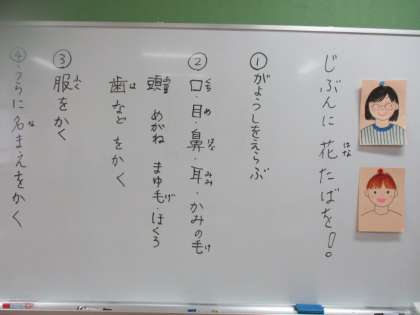 じぶんに花たばを！
①がようしをえらぶ
②口・目・鼻・耳・かみの毛
頭 めがね まゆ毛・ほくろ
歯などをかく
③服をかく
④うらに名まえをかく